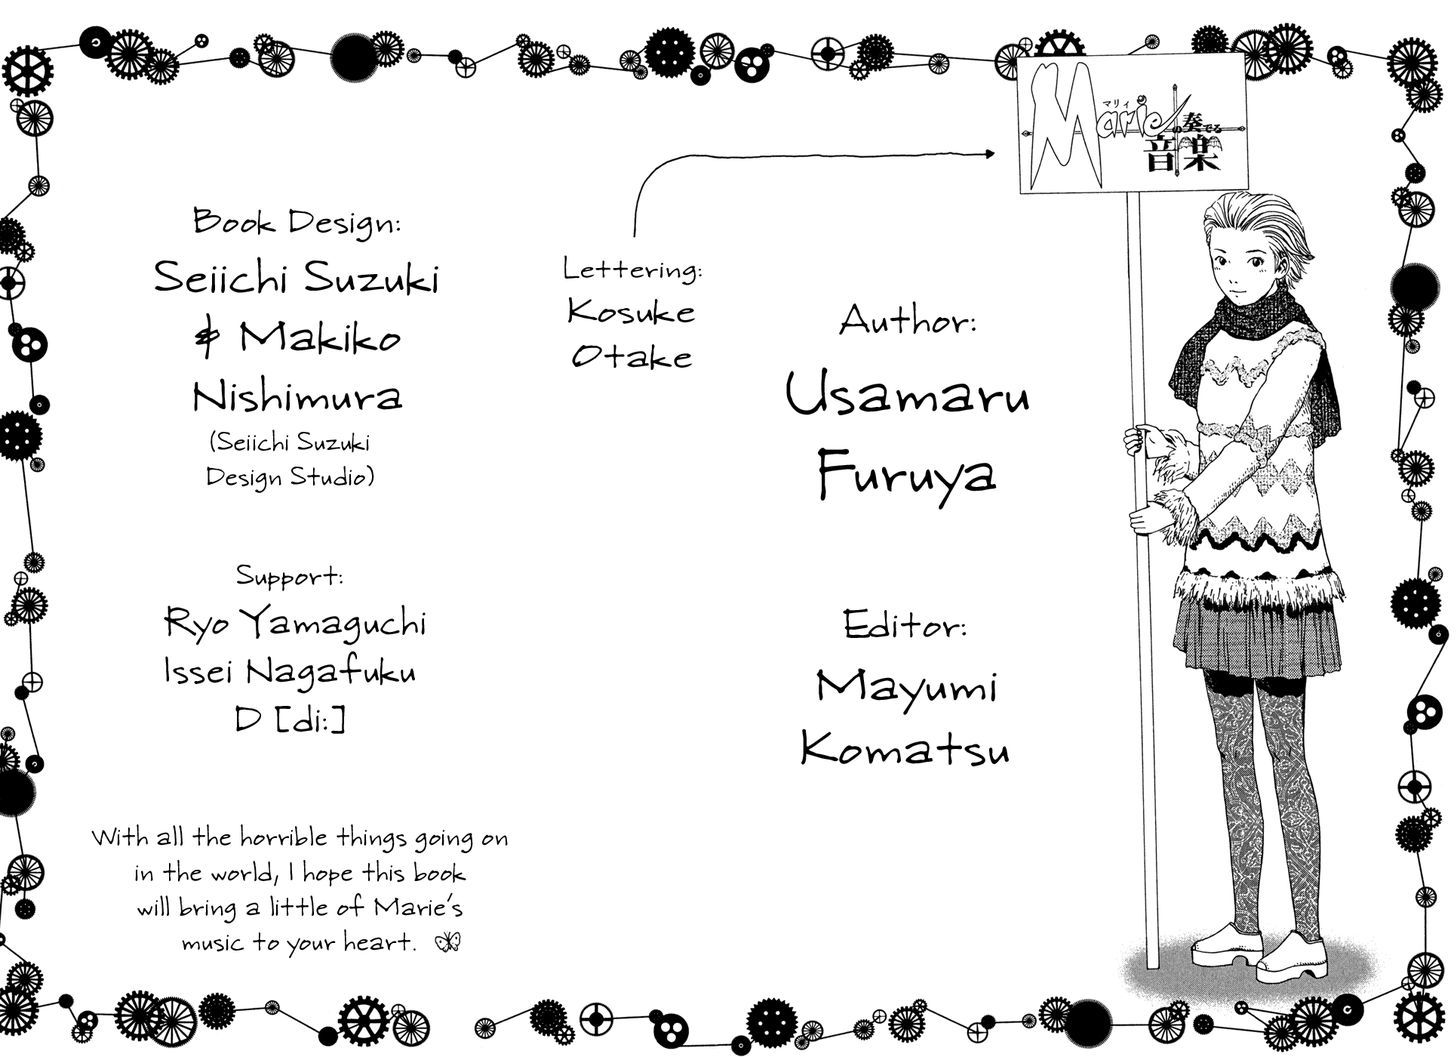 Marie
マリィ
の奏でる
音楽
Book Design:
Seiichi Suzuki
& Makiko
Nishimura
(Seiichi Suzuki
Design Studio)
Lettering:
Kosuke
Otake
Author:
Usamaru
Furuya
Support:
Ryo Yamaguchi
Issei Nagafuku
D [di:]
Editor:
Mayumi
Komatsu
With all the horrible things going on
in the world, I hope this book
will bring a little of Marie's
music to your heart.